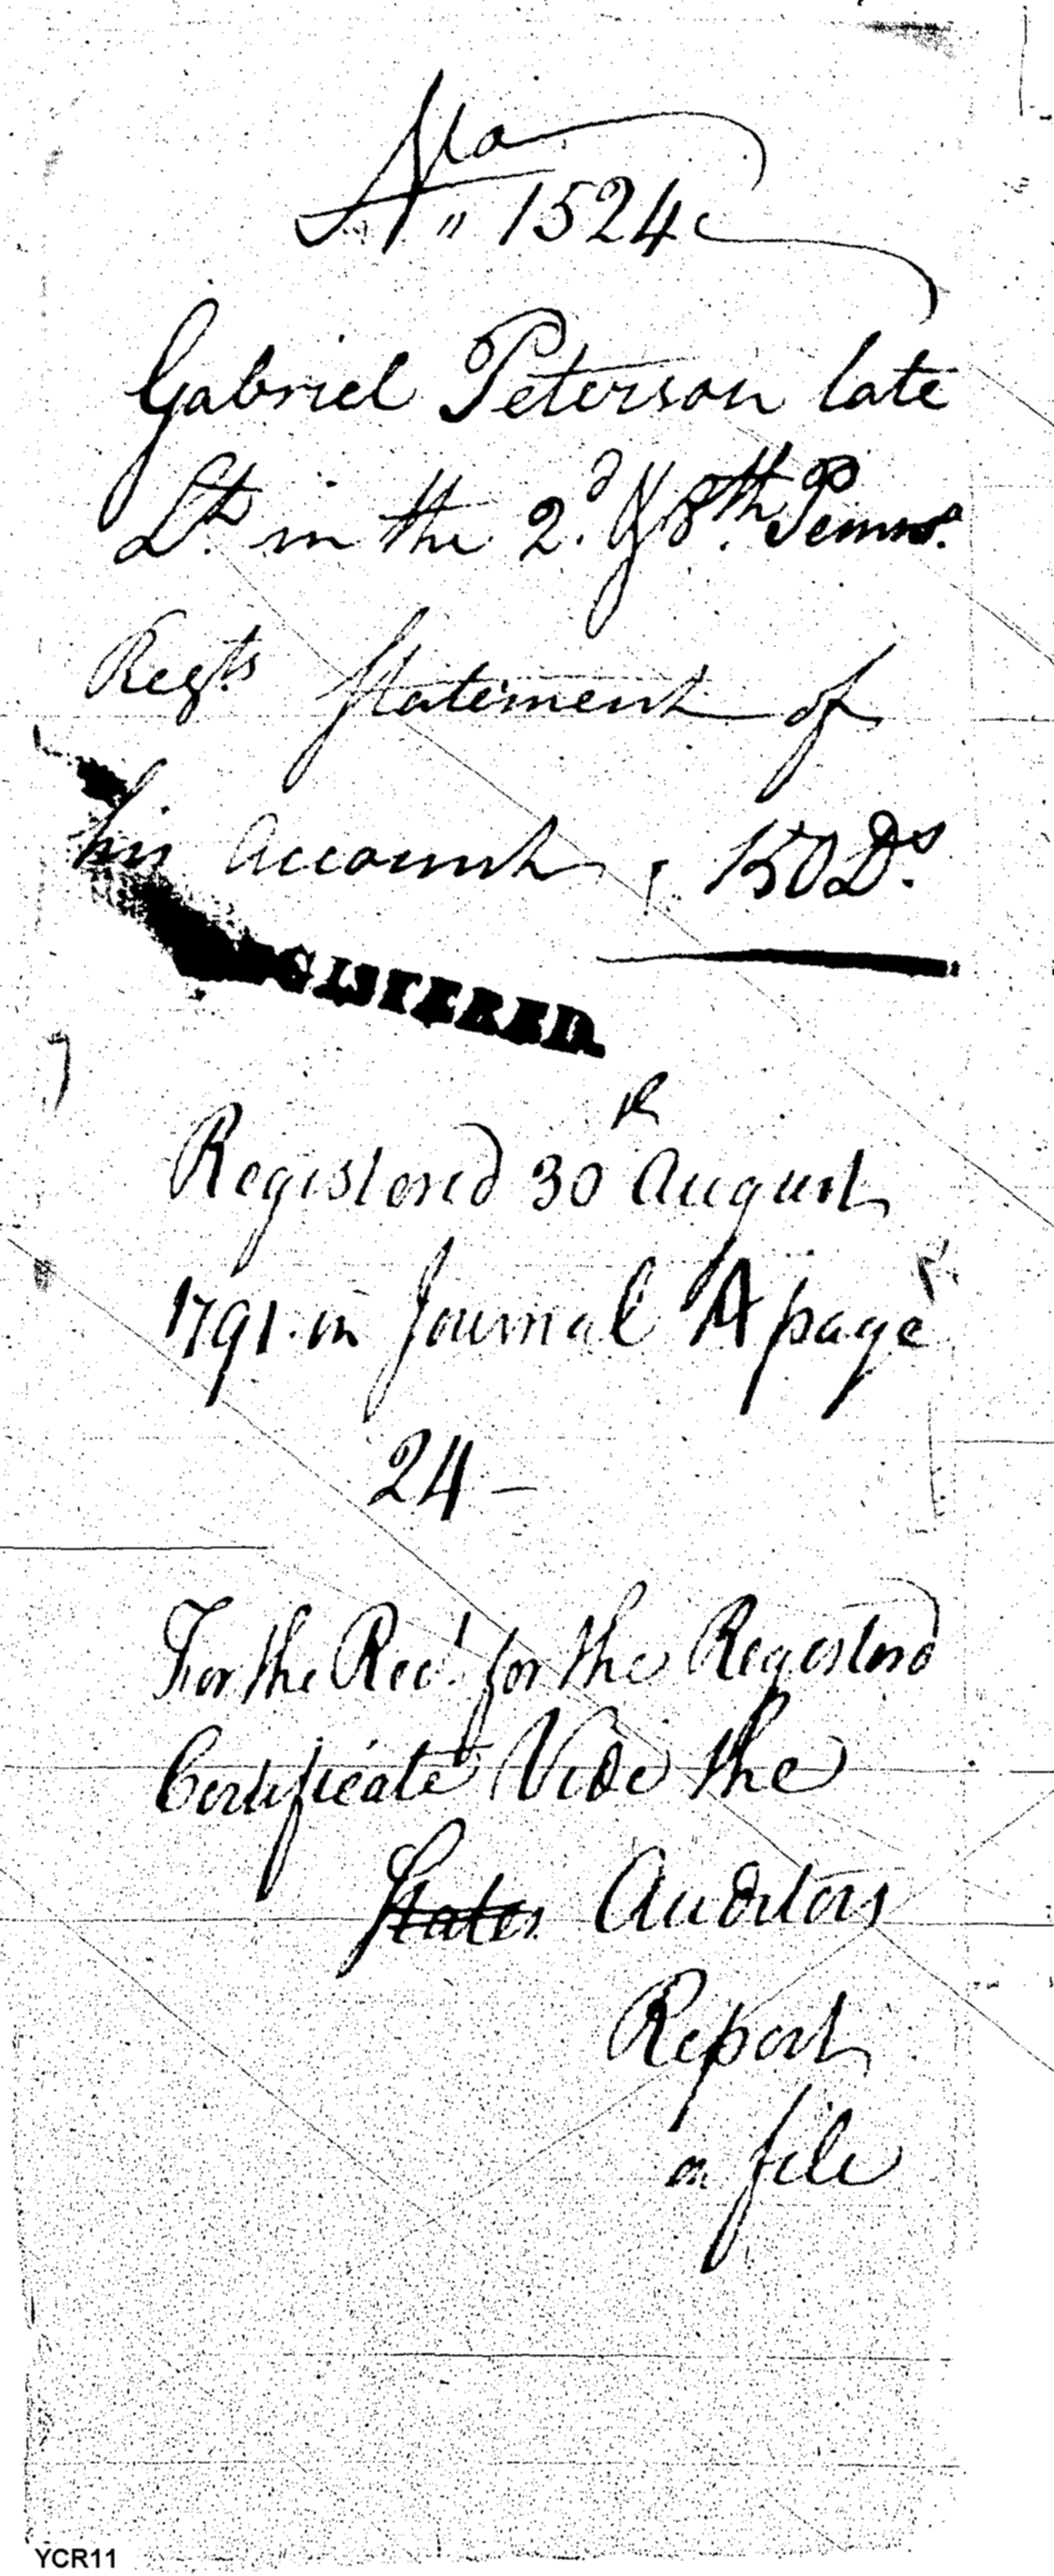 No
" 1524
Gabriel Peterson late
Lt. in the 2d. & 8th. Pennsa.
Regts Statement of
his Account , 150 Ds.
GISTERED
Registered 30th August
1791 in Journal A page
24 –
For the Rect. for the Registered
Certificate Vide the
States Auditors
Report
on file
YCR11